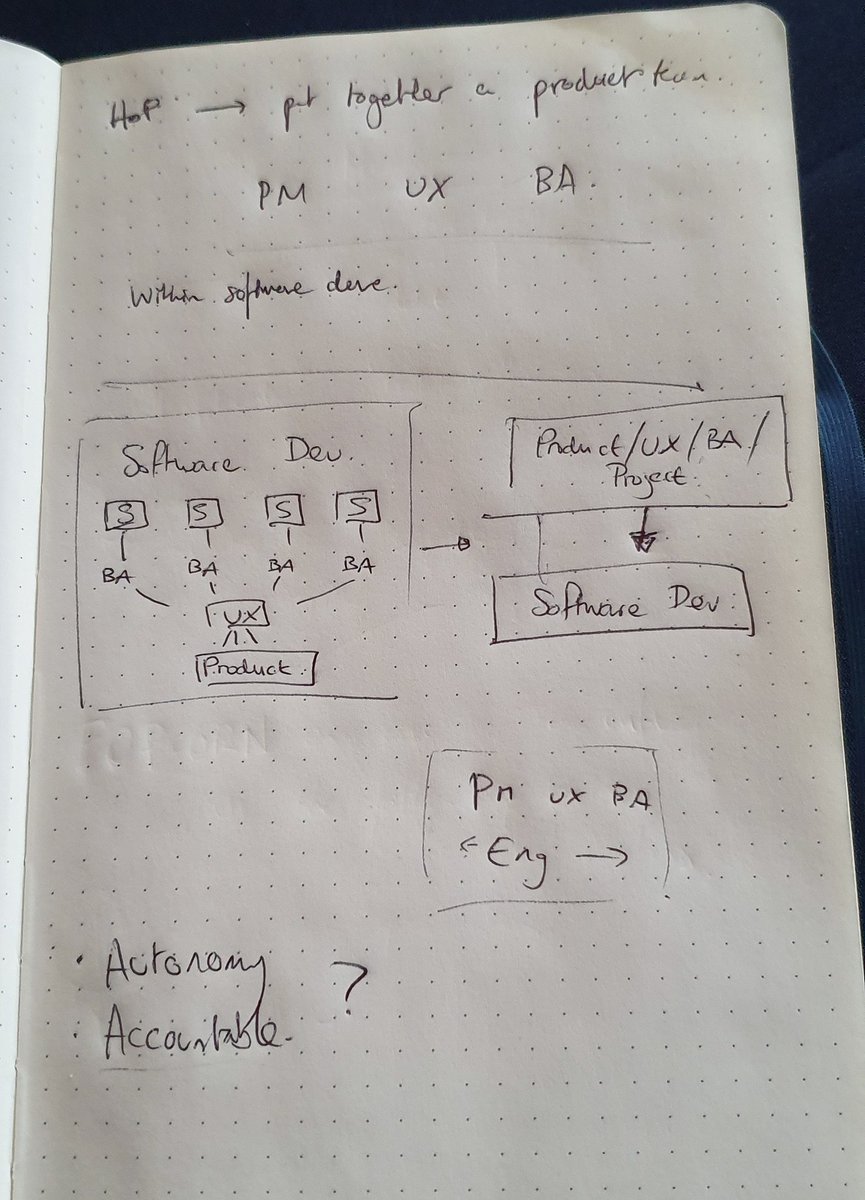 HoP → put together a product team.
PM UX BA.
Within software deve.
Software Dev.
S S S S
BA BA BA BA
UX
Product.
Product/UX/BA/
Project.
Software Dev.
PM UX BA
← Eng →
· Autonomy
?
· Accountable.